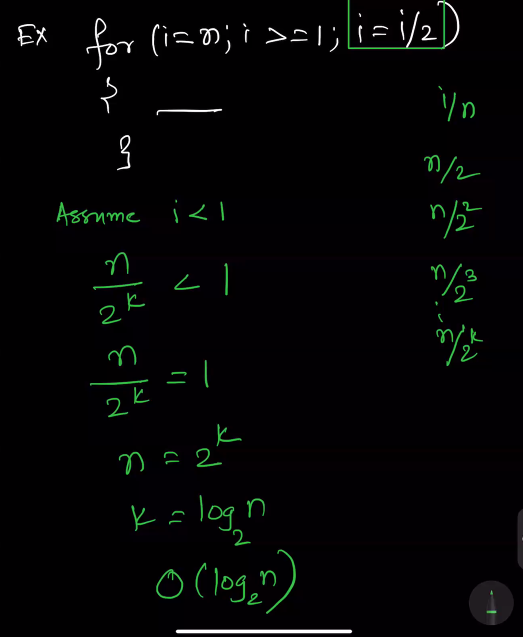 Ex for (i=n; i >=1; i = i/2)
{ —
}
Assume i<1
n/2^k < 1
n/2^k = 1
n = 2^k
k = log₂n
O(log₂n)
i/n
n/2
n/2²
n/2³
n/2^k